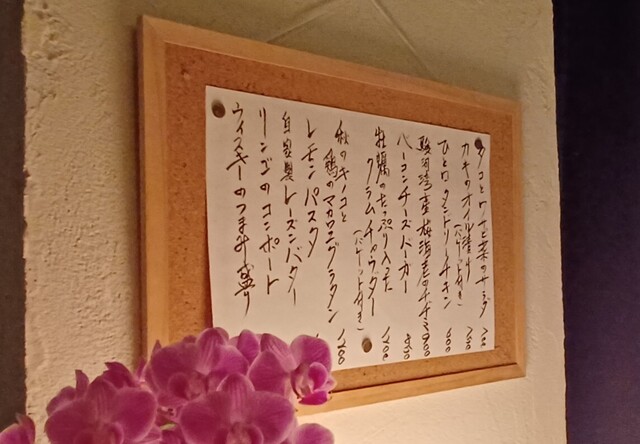 タコと
カキのオイル漬け
(バケット付き)
ひと口タンドリーチキン
駿河湾産桜海老のチヂミ 900
ベーコンチーズバーガー
牡蠣のたっぷり入った
クラムチャウダー 1200
(バケット付き)
秋のキノコと
鶏のマカロニグラタン 1200
レモンパスタ
自家製レーズンバター
リンゴのコンポート
ウイスキーのつまみ盛り